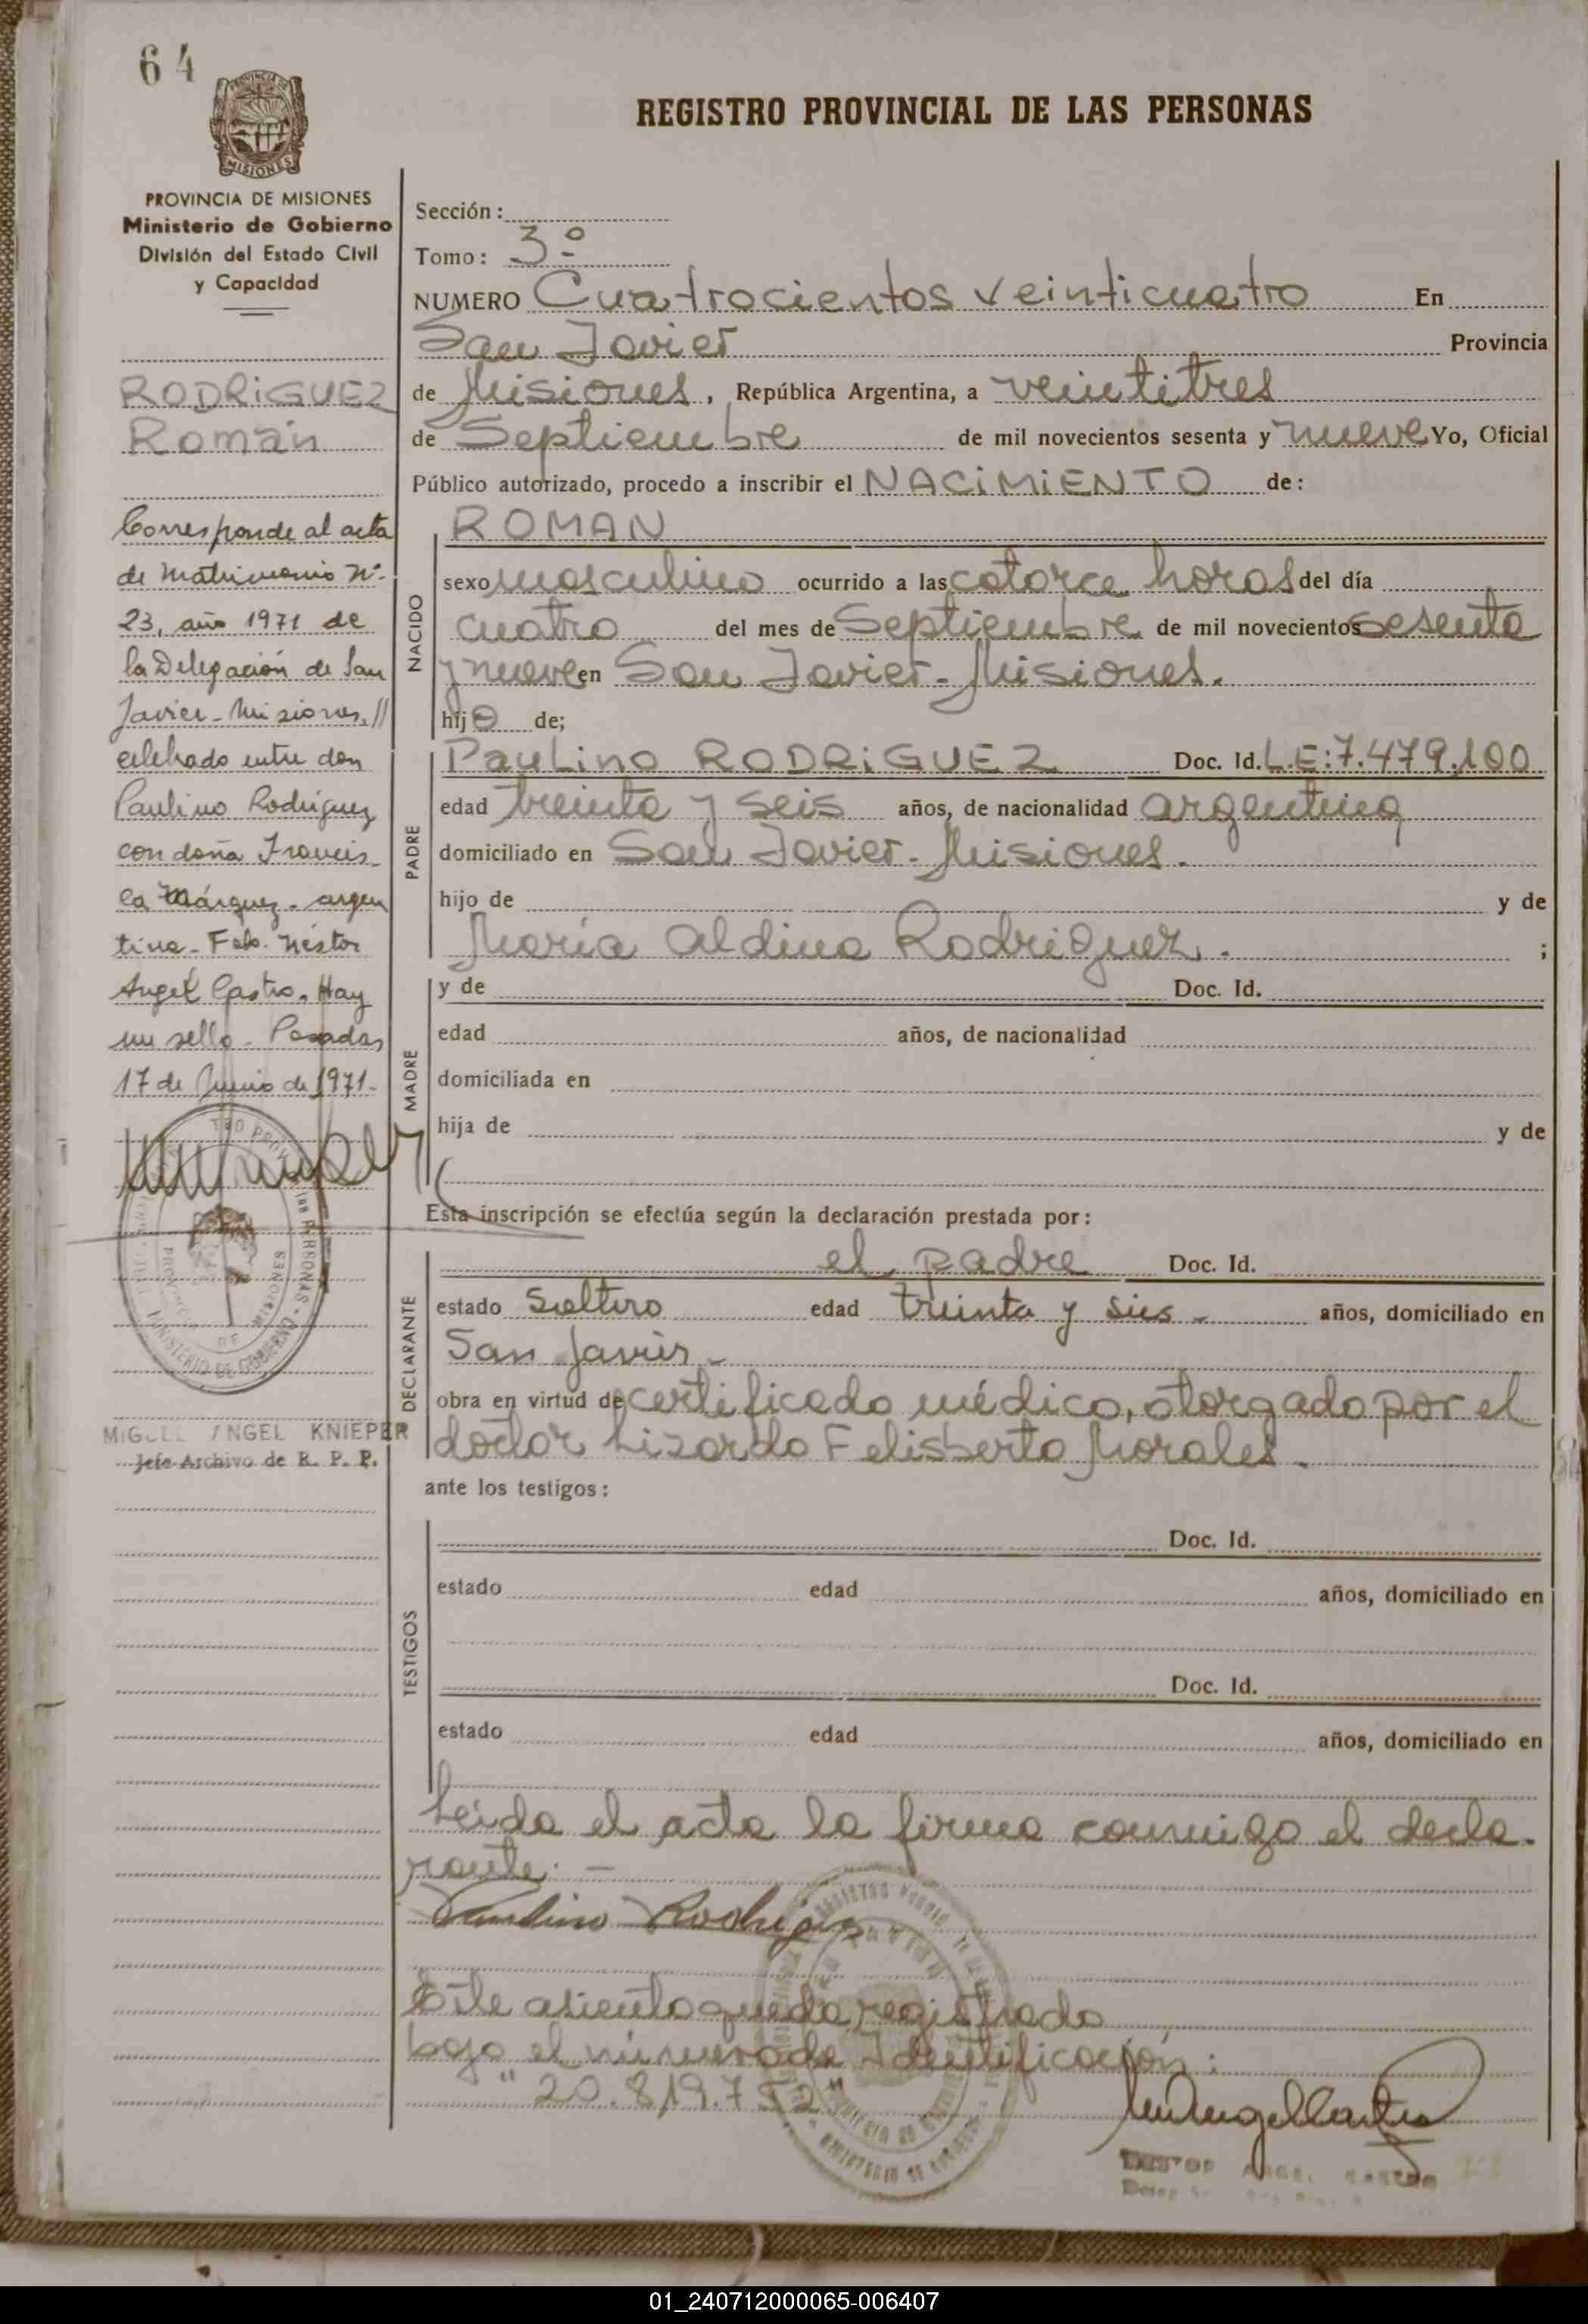 64
PROVINCIA DE
MISIONES
REGISTRO PROVINCIAL DE LAS PERSONAS
PROVINCIA DE MISIONES
Ministerio de Gobierno
División del Estado Civil
y Capacidad
RODRIGUEZ
Román
Corresponde al acta
de Matrimonio Nº
23, año 1971 de
la Delegación de San
Javier - Misiones, //
celebrado entre don
Paulino Rodríguez
con doña Francis-
ca Márquez - argen
tina - Fdo. Néstor
Angel Castro. Hay
un sello - Posadas
17 de Junio de 1971.-
MIGUEL ANGEL KNIEPER
Jefe Archivo de R. P. P.
Sección :
Tomo : 3º
NUMERO Cuatrocientos veinticuatro En
San Javier Provincia
de Misiones, República Argentina, a veintitres
de Septiembre de mil novecientos sesenta y nueve Yo, Oficial
Público autorizado, procedo a inscribir el NACIMIENTO de :
NACIDO
ROMAN
sexo masculino ocurrido a las catorce horas del día
cuatro del mes de Septiembre de mil novecientos sesenta
y nueve en San Javier - Misiones.
hijo de;
PADRE
Paulino RODRIGUEZ Doc. Id. L.E: 7.479.100
edad treinta y seis años, de nacionalidad argentina
domiciliado en San Javier - Misiones.
hijo de y de
María Aldina Rodriguez. ;
MADRE
y de Doc. Id.
edad años, de nacionalidad
domiciliada en
hija de y de
Esta inscripción se efectúa según la declaración prestada por :
DECLARANTE
el padre Doc. Id.
estado Soltero edad treinta y seis - años, domiciliado en
San Javier -
obra en virtud de certificado médico, otorgado por el
doctor Lizardo Felisberto Morales.
ante los testigos :
TESTIGOS
Doc. Id.
estado edad años, domiciliado en
Doc. Id.
estado edad años, domiciliado en
Leida el acta la firma conmigo el decla-
rante. -
Paulino Rodriguez
Este asiento queda registrado
bajo el número de Identificación :
"20.819.752"
01_240712000065-006407